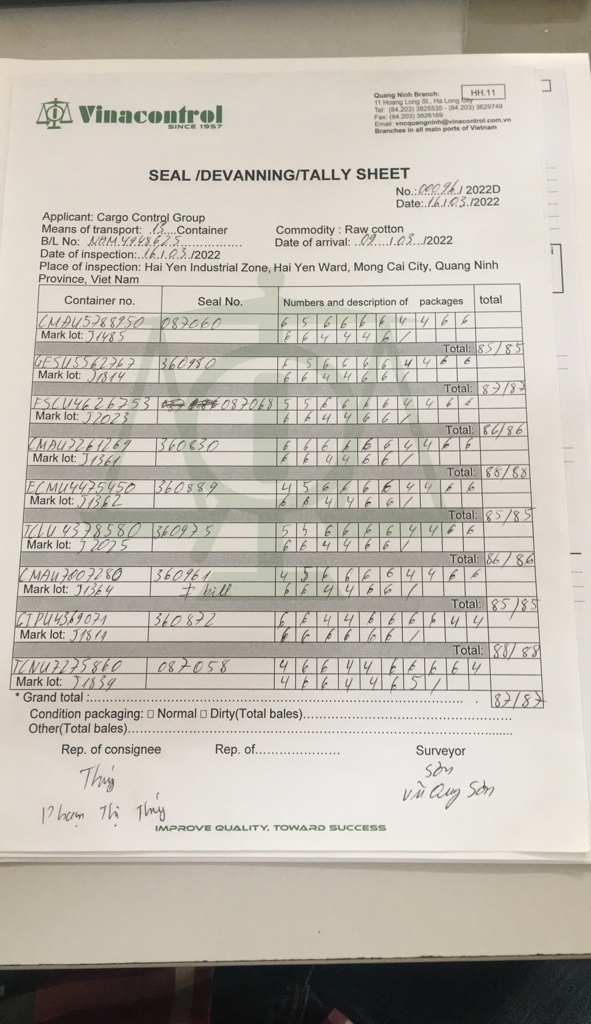 Vinacontrol
SINCE 1957
Quang Ninh Branch:
HH.11
11 Hoang Long St., Ha Long City
Tel: (84.203) 3825535 - (84.203) 3629749
Fax: (84.203) 3826169
Email: vncquangninh@vinacontrol.com.vn
Branches in all main ports of Vietnam
SEAL /DEVANNING/TALLY SHEET
No.:00096/ 2022D
Date:.16./.03./2022
Applicant: Cargo Control Group
Means of transport: .13....Container Commodity : Raw cotton
B/L No: NAM4948625 Date of arrival: .09..../.03.../2022
Date of inspection:.16./.03./2022
Place of inspection: Hai Yen Industrial Zone, Hai Yen Ward, Mong Cai City, Quang Ninh
Province, Viet Nam
Container no. Seal No. Numbers and description of packages total
CMAU5788950 087060 6 5 6 6 6 6 4 4 6 6
Mark lot: J1485 6 6 4 4 4 6 /
Total: 85/85
GESU5562767 360980 6 5 6 6 6 6 4 4 6 6
Mark lot: J1814 6 6 4 4 6 6 /
Total: 87/87
FSCU4626753 087068 5 5 6 6 6 6 4 4 6 6
Mark lot: J2023 6 6 4 4 6 6 /
Total: 86/86
CMAU7261269 360830 6 6 6 6 6 6 4 4 6 6
Mark lot: J1361 6 6 4 4 6 6 /
Total: 88/88
ECMU4475450 360889 4 5 6 6 6 6 4 4 6 6
Mark lot: J1362 6 6 4 4 6 6 /
Total: 85/85
TCLU 4378580 360975 5 5 6 6 6 6 4 4 6 6
Mark lot: J2025 6 6 4 4 6 6 /
Total: 86/86
CMAU7007280 360961 4 5 6 6 6 6 4 4 6 6
Mark lot: J1364 ≠ bill 6 6 4 4 6 6 /
Total: 85/85
GIPU4369071 360872 6 6 4 4 6 6 6 6 4 4
Mark lot: J1811 6 6 6 6 6 6 /
Total: 88/88
TCNU7275860 087058 4 6 6 4 4 6 6 6 6 4
Mark lot: J1839 4 6 6 4 4 6 5 /
* Grand total : 87/87
Condition packaging: □ Normal □ Dirty(Total bales)
Other(Total bales)
Rep. of consignee Rep. of Surveyor
Thúy Sơn
Phạm Thị Thúy Vũ Quy Sơn
IMPROVE QUALITY, TOWARD SUCCESS